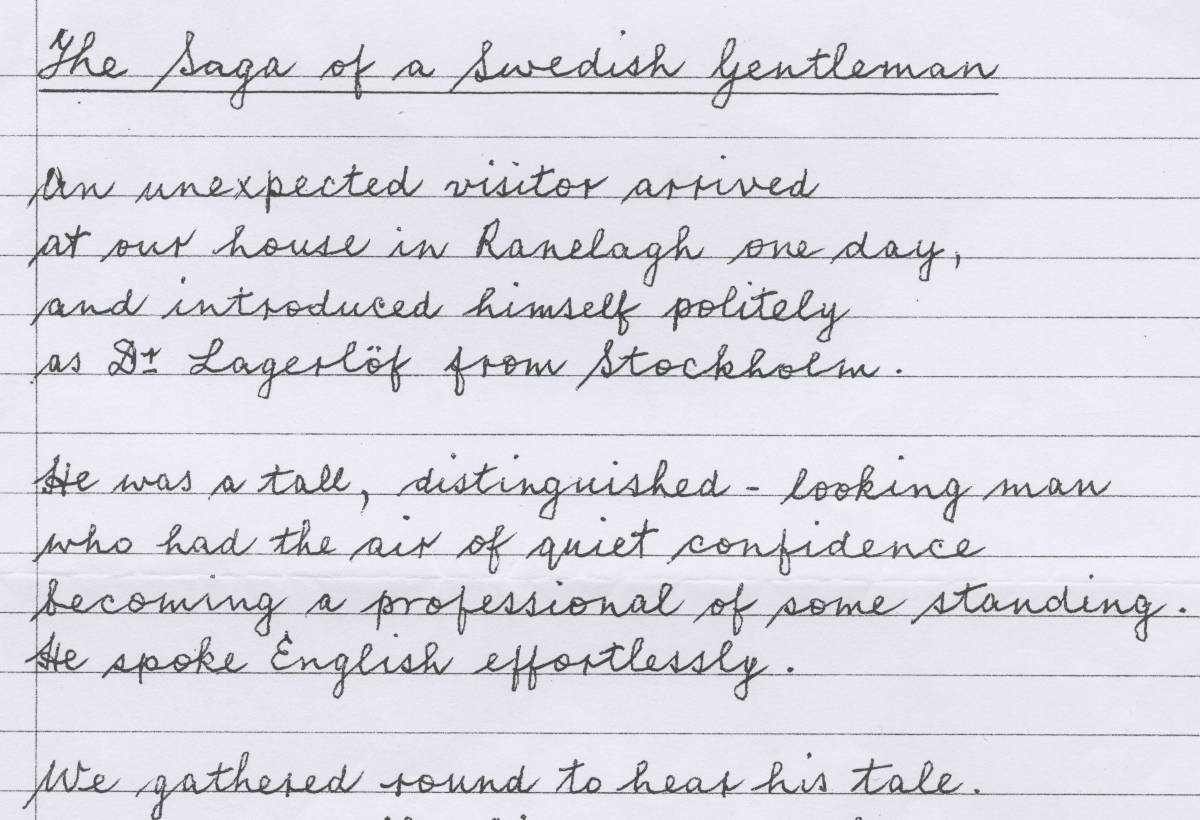 The Saga of a Swedish Gentleman
An unexpected visitor arrived
at our house in Ranelagh one day,
and introduced himself politely
as Dr Lagerlöf from Stockholm.
He was a tall, distinguished-looking man
who had the air of quiet confidence
becoming a professional of some standing.
He spoke English effortlessly.
We gathered round to hear his tale.